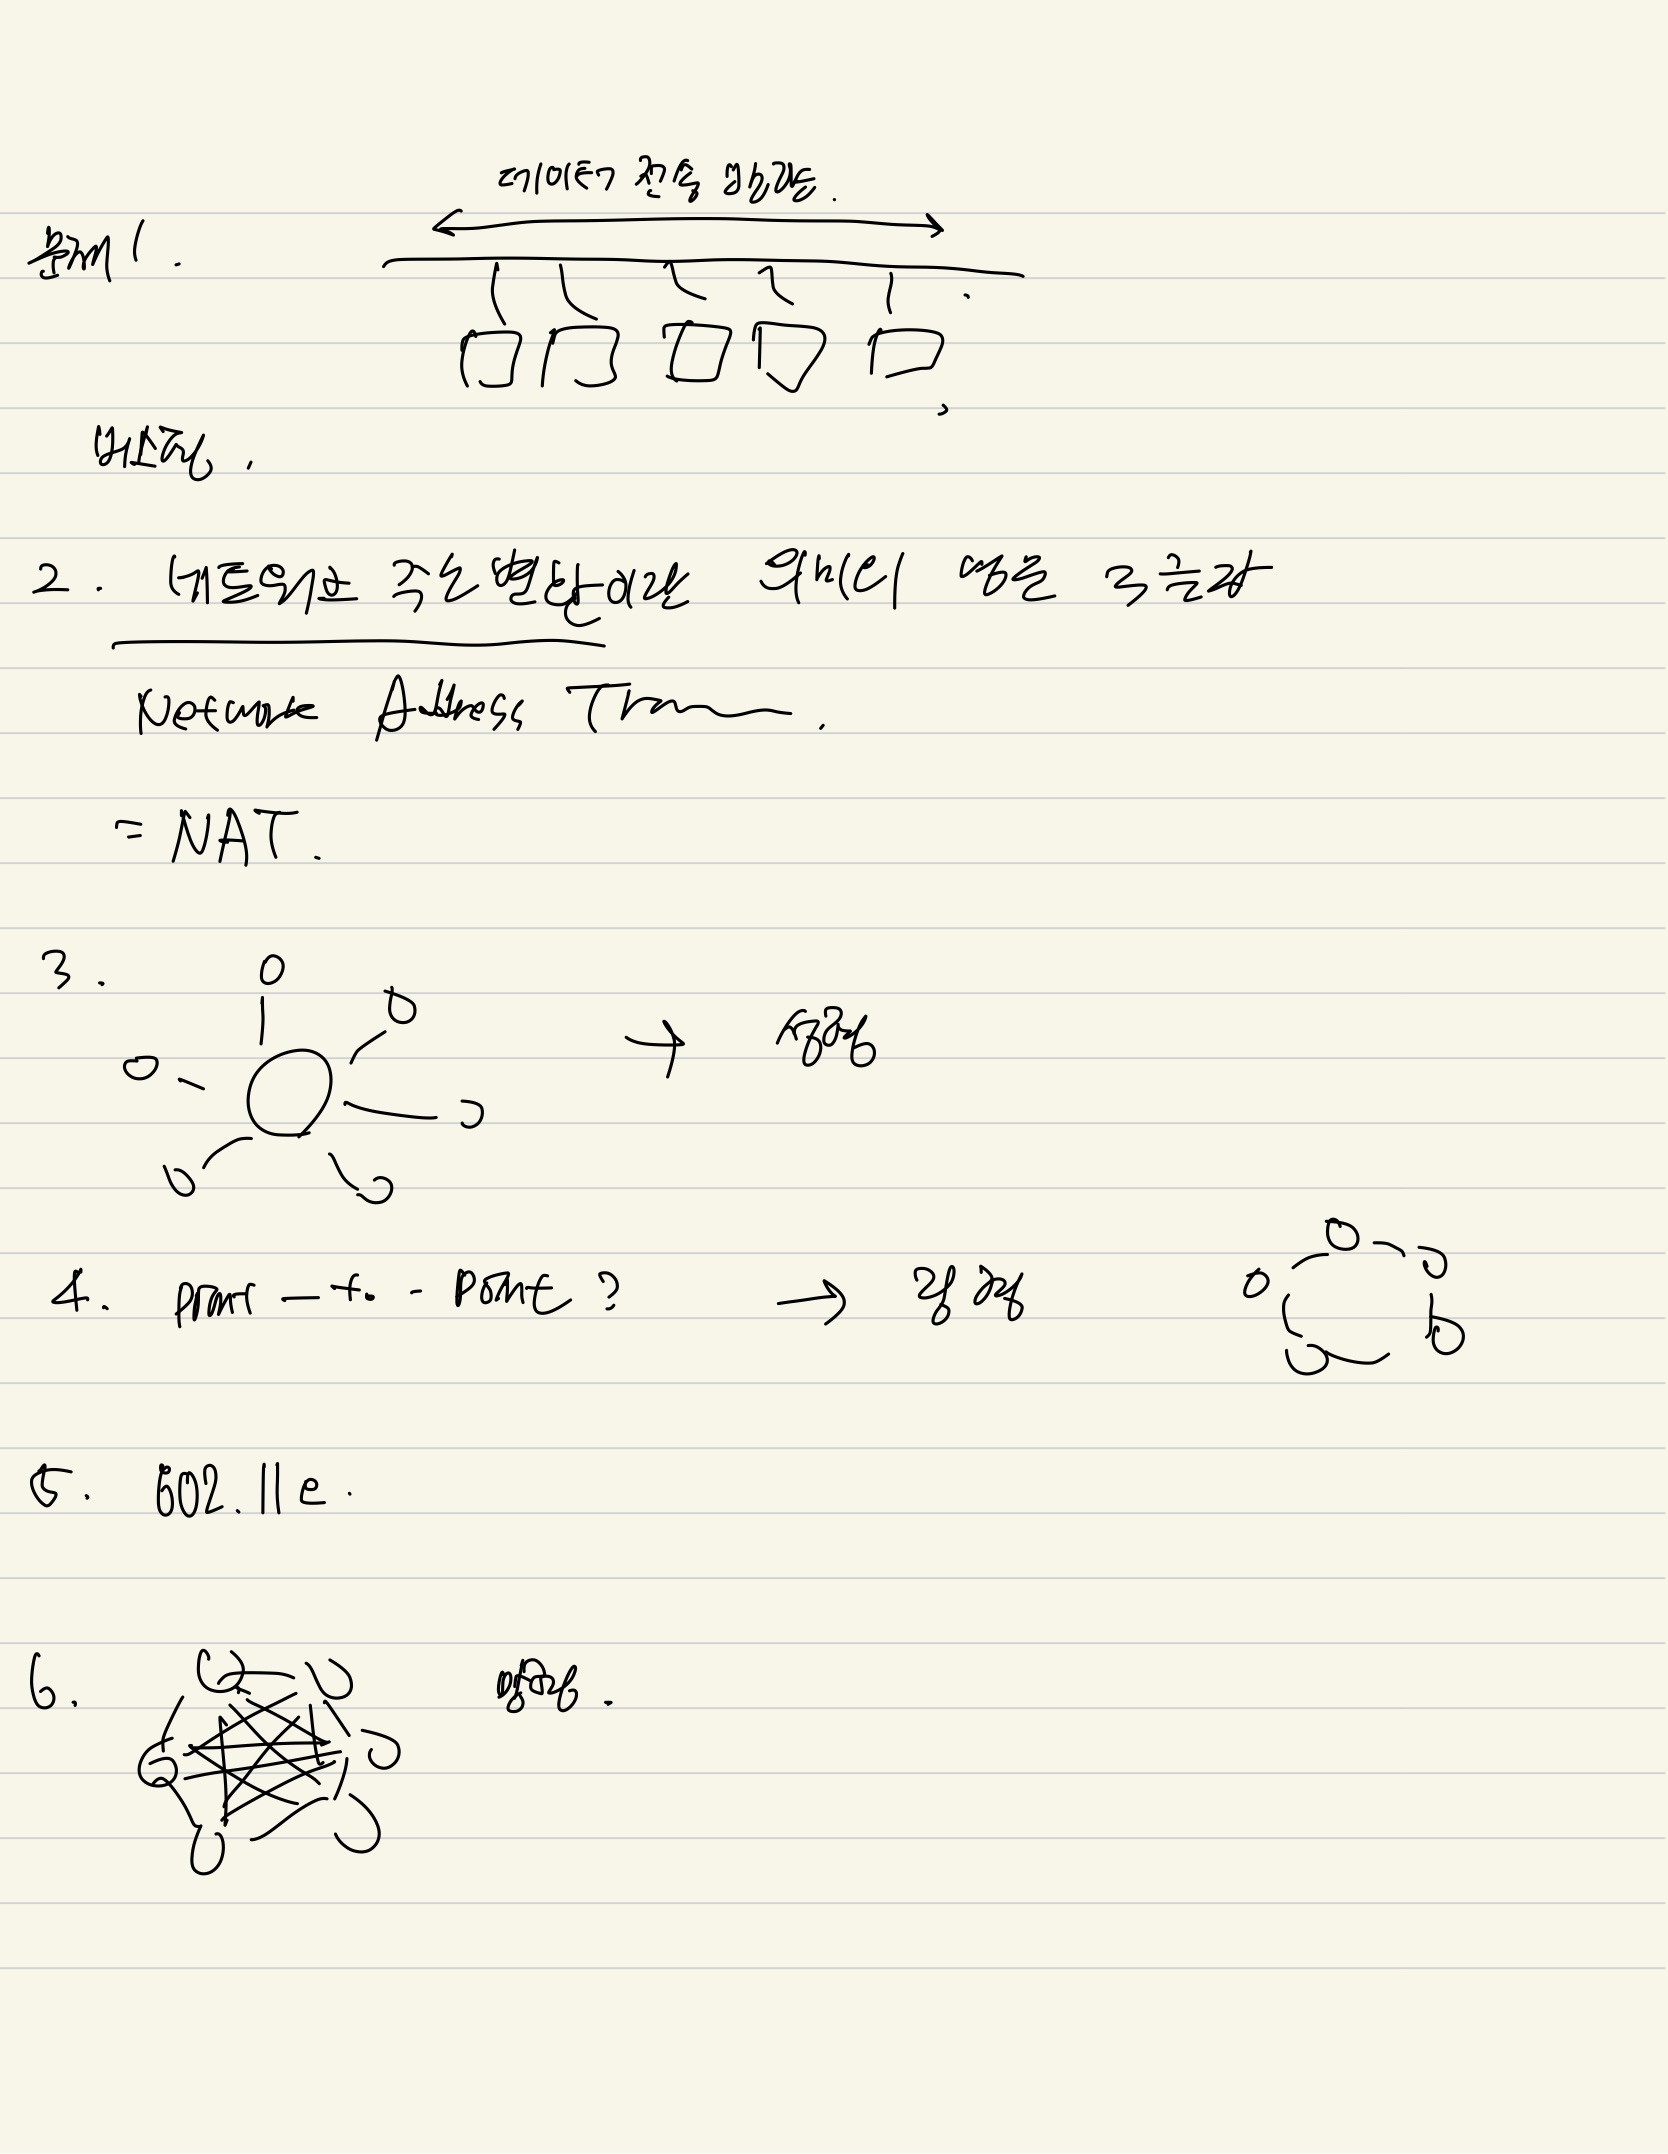 데이터 전송 방향
문제 1.
버스형.
2. 네트워크 주소 변환이란 의미의 영문 3글자
Network Address Tran
= NAT.
3. → 성형
4. point-to-point? → 링형
5. 802.11e.
6. 망형.